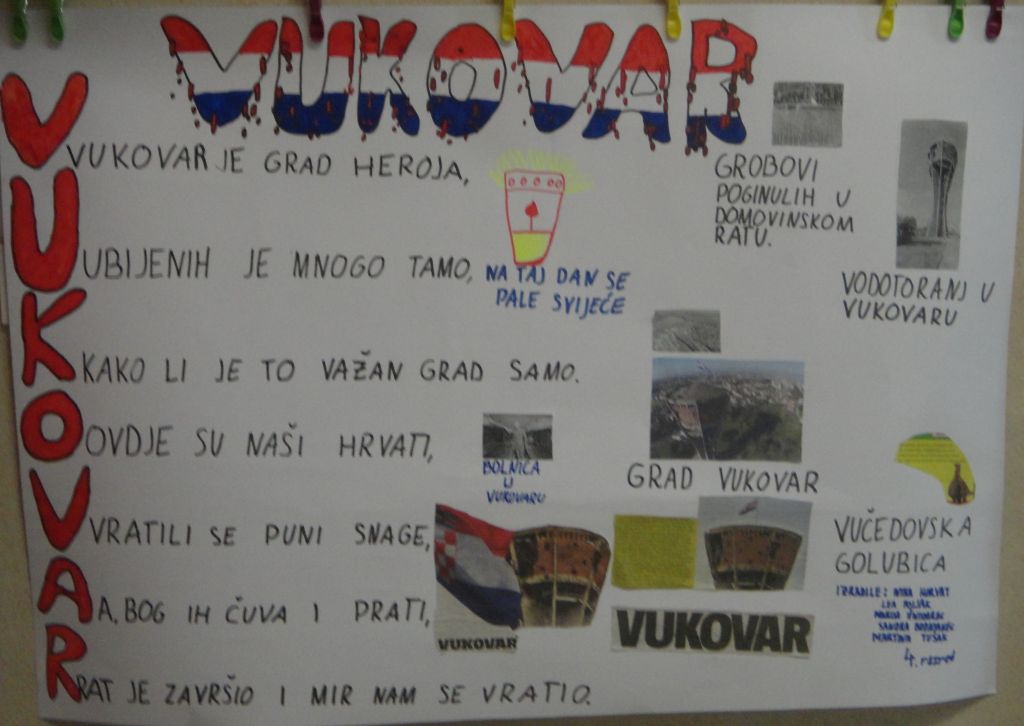 VUKOVAR
VUKOVAR
VUKOVAR JE GRAD HEROJA,
UBIJENIH JE MNOGO TAMO,
KAKO LI JE TO VAŽAN GRAD SAMO.
OVDJE SU NAŠI HRVATI,
VRATILI SE PUNI SNAGE,
A, BOG IH ČUVA I PRATI,
RAT JE ZAVRŠIO I MIR NAM SE VRATIO.
NA TAJ DAN SE
PALE SVIJEĆE
GROBOVI
POGINULIH U
DOMOVINSKOM
RATU.
VODOTORANJ U
VUKOVARU
BOLNICA
U
VUKOVARU
GRAD VUKOVAR
VUKOVAR
VUKOVAR
VUČEDOVSKA
GOLUBICA
IZRADILE: NINA HORVAT
SANDRA
MARTINA TUŠAK
4. razred